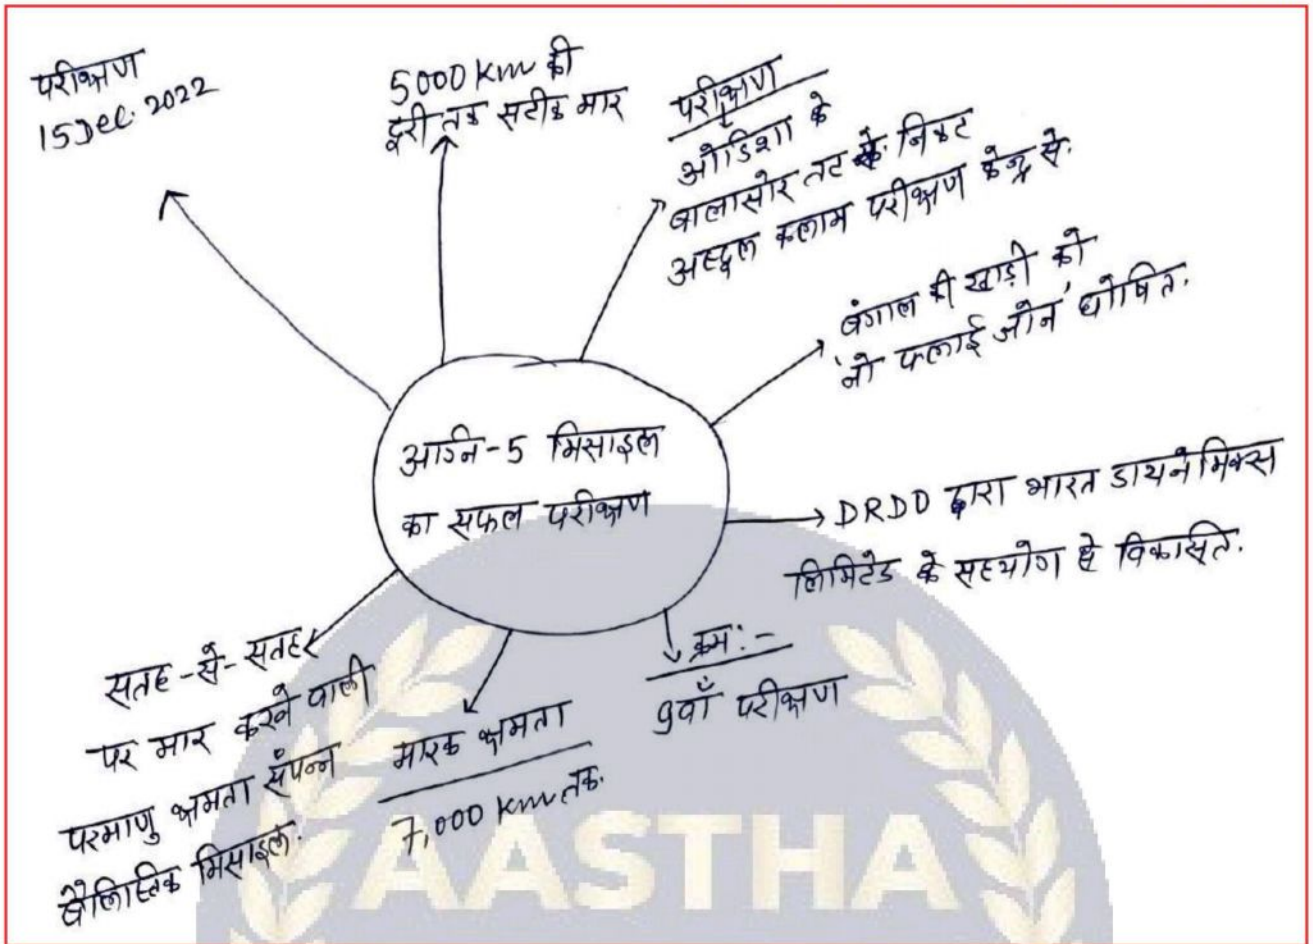 परीक्षण
15 Dec. 2022
5000 Km की
दूरी तक सटीक मार
परीक्षण
ओडिशा के
बालासोर तट के निकट
अब्दुल कलाम परीक्षण केन्द्र से.
बंगाल की खाड़ी को
'नो फ्लाई जोन' घोषित.
अग्नि-5 मिसाइल
का सफल परीक्षण
DRDO द्वारा भारत डायनेमिक्स
लिमिटेड के सहयोग से विकसित.
क्रम :-
9वाँ परीक्षण
मारक क्षमता
7,000 Km तक.
सतह-से-सतह
पर मार करने वाली
परमाणु क्षमता संपन्न
बैलिस्तिक मिसाइल.
AASTHA